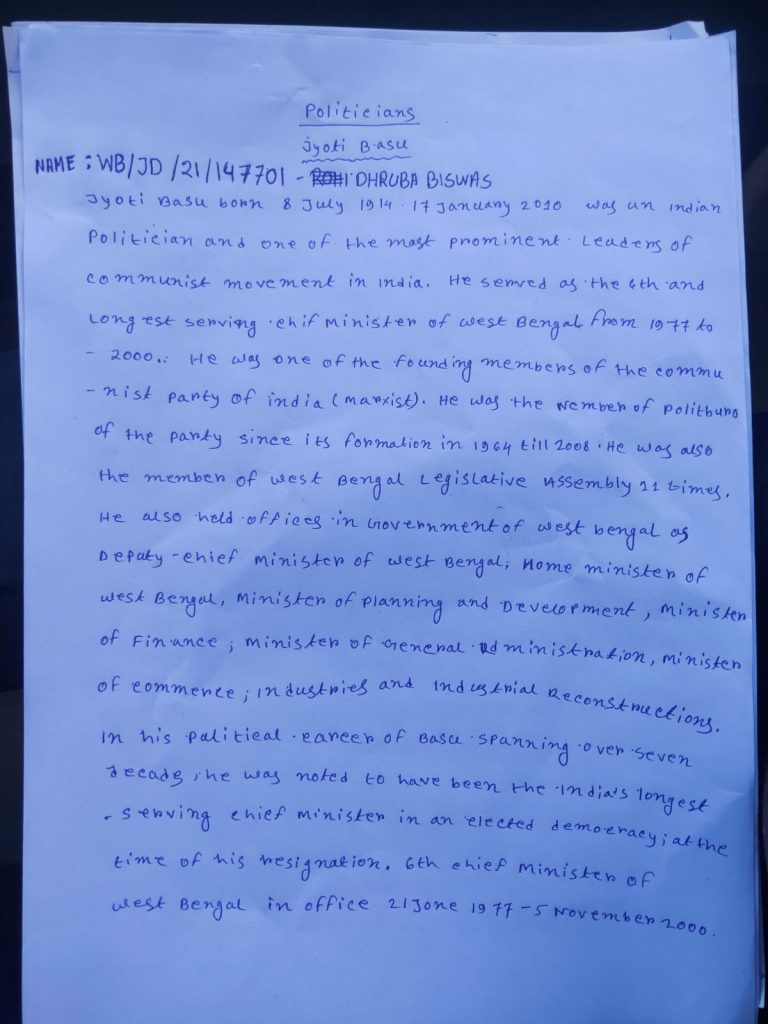 Politicians
Jyoti Basu
NAME : WB/JD/21/147701 - DHRUBA BISWAS
Jyoti Basu born 8 July 1914 . 17 January 2010 was an indian
Politician and one of the most prominent Leaders of
communist movement in india. He served as the 6th and
Longest serving chif minister of west Bengal from 1977 to
- 2000.: He was one of the founding members of the commu
- nist party of india (marxist). He was the member of politburo
of the party since its formation in 1964 till 2008. He was also
the member of west Bengal Legislative Assembly 11 times.
He also held offices in Government of west bengal as
Deputy-chief minister of west Bengal; Home minister of
west Bengal, Minister of planning and Development, minister
of Finance; minister of General Administration, minister
of commerce; industries and industrial Reconstructions.
In his palitical career of Basu spanning over seven
decads, he was noted to have been the India's longest
- serving chief minister in an elected democracy; at the
time of his resignation. 6th chief minister of
west Bengal in office 21 Jone 1977 - 5 November 2000.